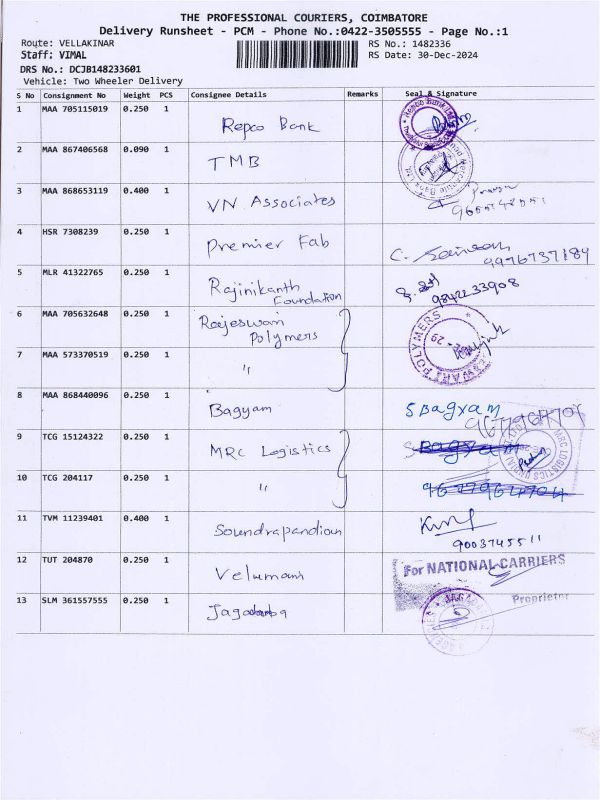 THE PROFESSIONAL COURIERS, COIMBATORE
Delivery Runsheet - PCM - Phone No.:0422-3505555 - Page No.:1
Route: VELLAKINAR RS No.: 1482336
Staff: VIMAL RS Date: 30-Dec-2024
DRS No.: DCJB148233601
Vehicle: Two Wheeler Delivery
S No Consignment No Weight PCS Consignee Details Remarks Seal & Signature
1 MAA 705115019 0.250 1 Repco Bank
2 MAA 867406568 0.090 1 TMB
3 MAA 868653119 0.400 1 VN Associates
4 HSR 7308239 0.250 1 Premier Fab
9976737189
5 MLR 41322765 0.250 1 Rajinikanth Foundation
9842233908
6 MAA 705632648 0.250 1 Rajeswari Polymers
7 MAA 573370519 0.250 1 "
8 MAA 868440096 0.250 1 Bagyam S Bagyam
9677964704
9 TCG 15124322 0.250 1 MRC Logistics S Bagyam
10 TCG 204117 0.250 1 " 9677964704
11 TVM 11239401 0.400 1 Soundrapandian
9003745511
12 TUT 204870 0.250 1 Velumani For NATIONAL CARRIERS
Proprietor
13 SLM 361557555 0.250 1